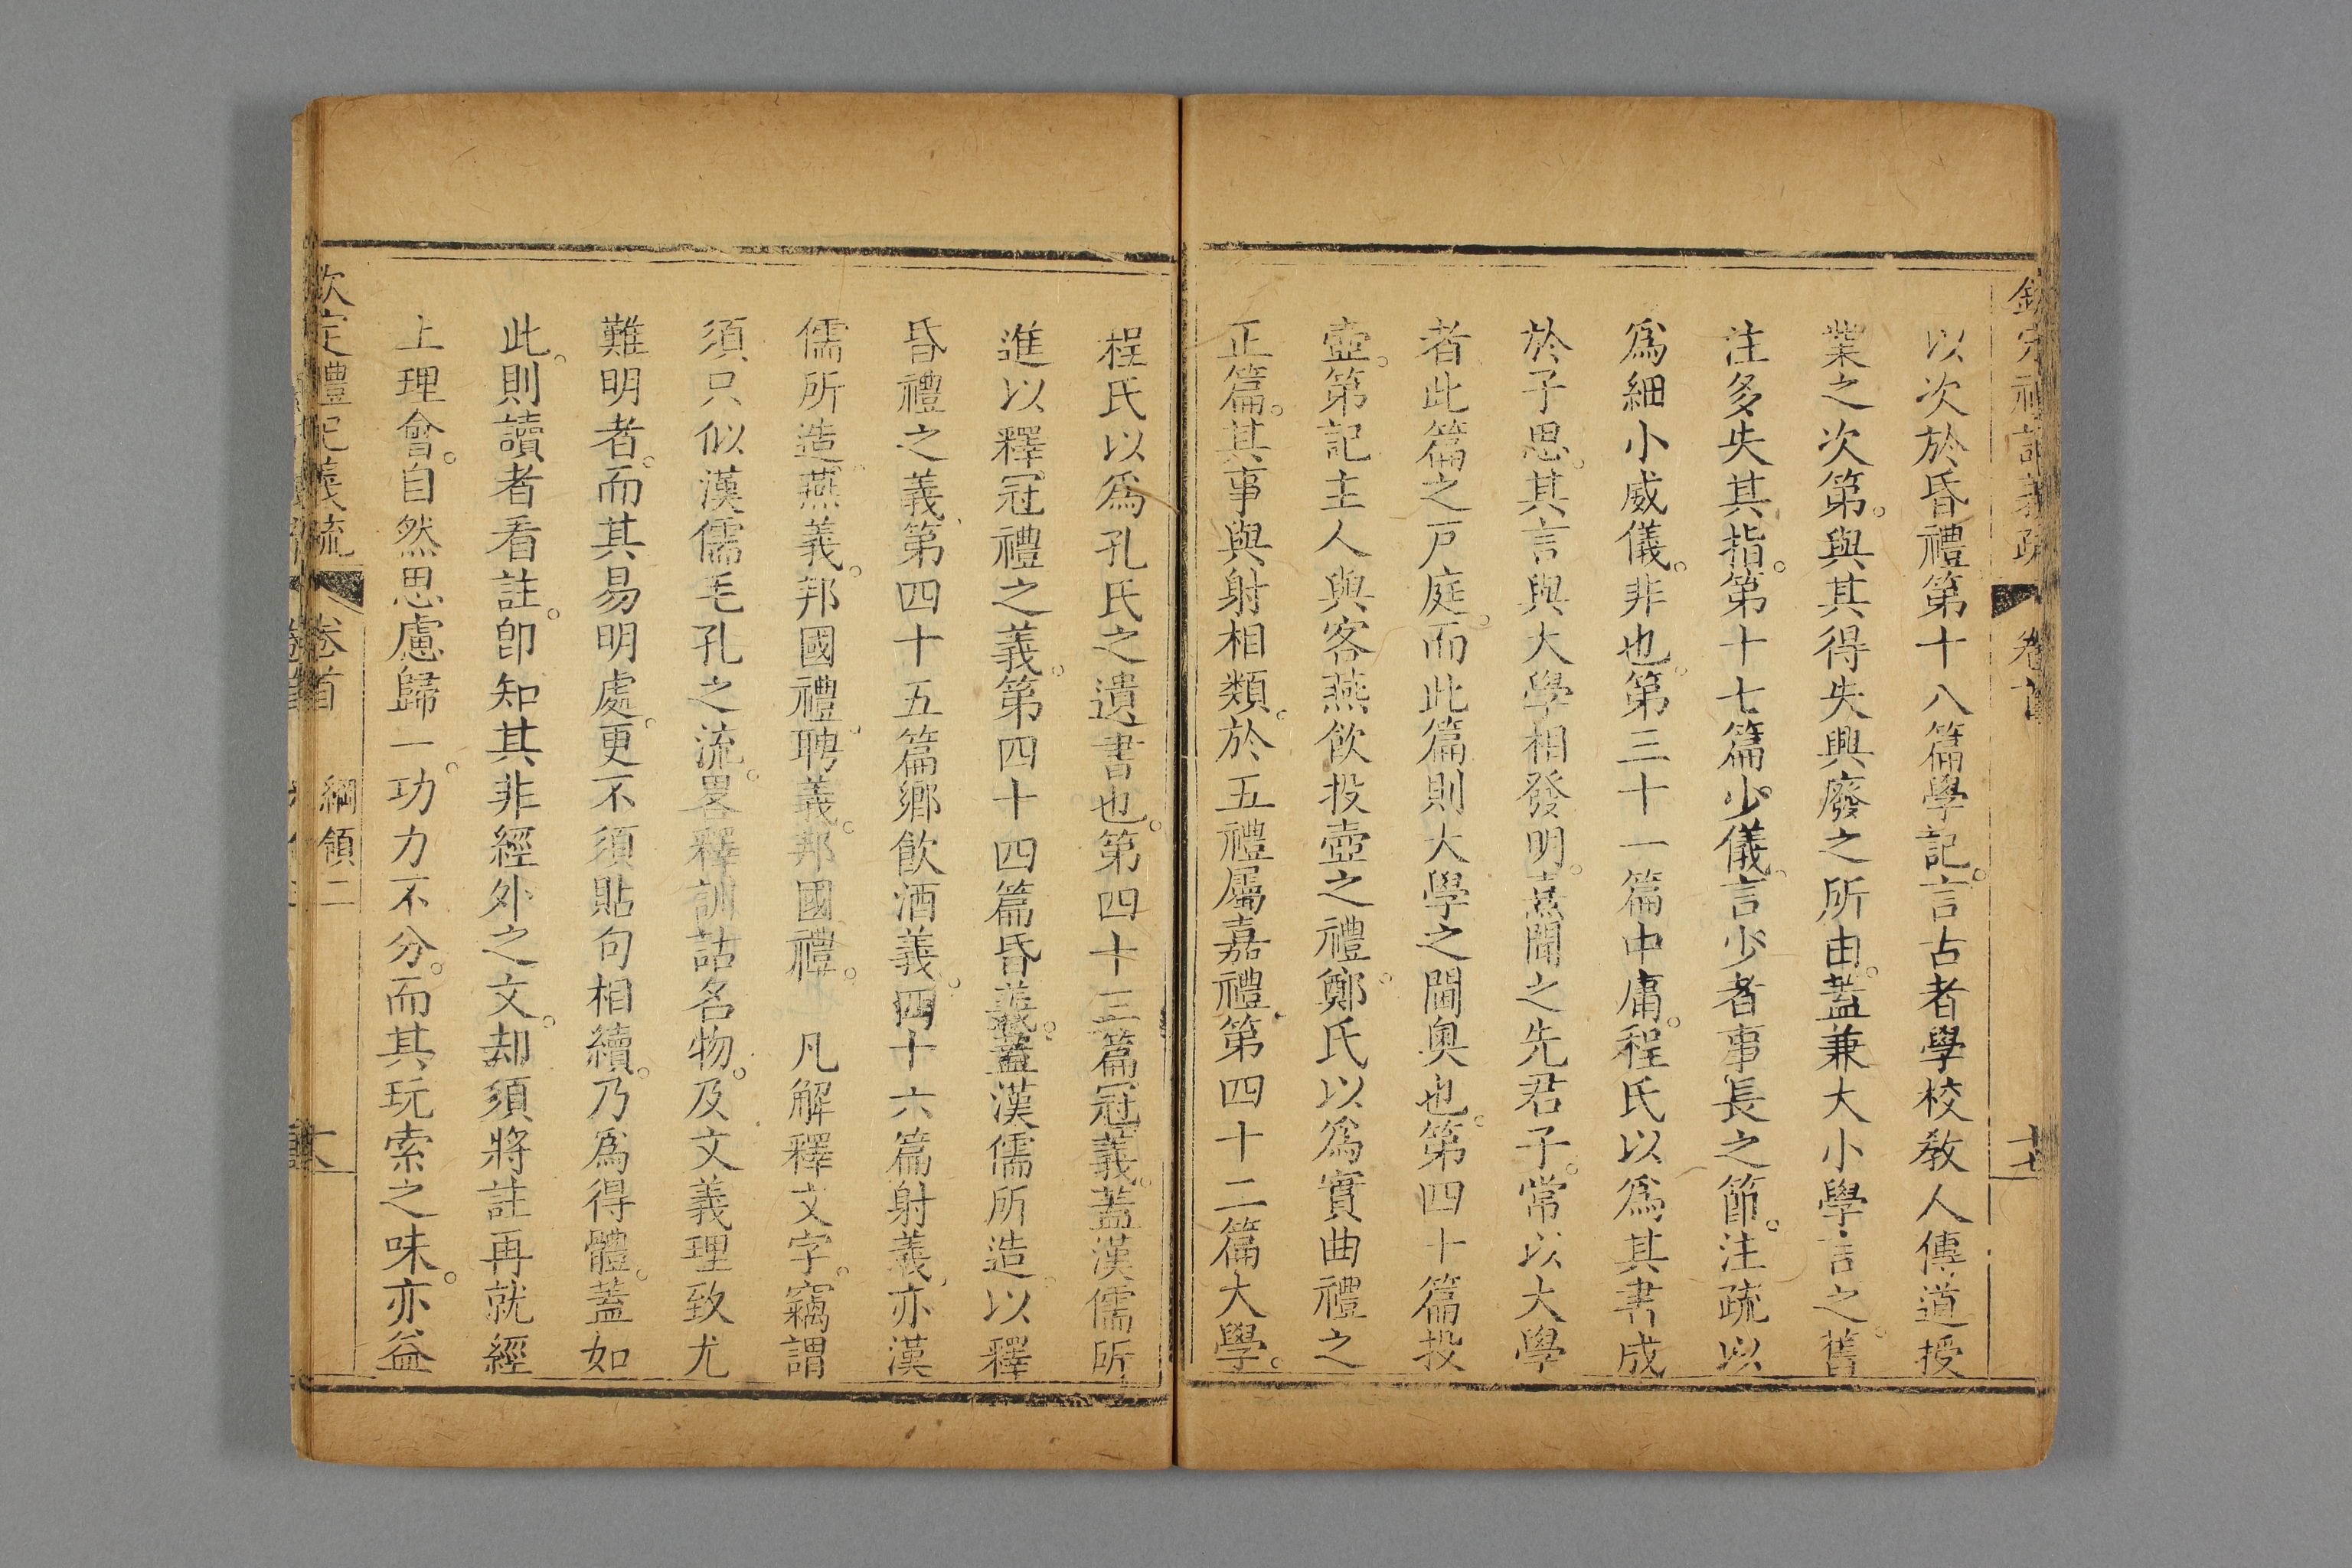 欽定禮記義疏 卷首 十七
以次於昏禮第十八篇學記。言古者學校教人傳道授
業之次第。與其得失興廢之所由。蓋兼大小學言之。舊
注多失其指。第十七篇少儀。言少者事長之節。注疏以
爲細小威儀。非也。第三十一篇中庸。程氏以爲其書成
於子思。其言與大學相發明。熹聞之先君子。常以大學
者此篇之戸庭。而此篇則大學之閫奧也。第四十篇投
壺。第記主人與客燕飲投壺之禮。鄭氏以爲實曲禮之
正篇。其事與射相類。於五禮屬嘉禮。第四十二篇大學。
程氏以爲孔氏之遺書也。第四十三篇冠義。蓋漢儒所
進以釋冠禮之義。第四十四篇昏義。蓋漢儒所造。以釋
昏禮之義、第四十五篇鄉飲酒義。四十六篇射義、亦漢
儒所造。燕義。邦國禮、聘義。邦國禮。 凡解釋文字。竊謂
須只似漢儒毛孔之流。畧釋訓詁名物。及文義理致尤
難明者。而其易明處。更不須貼句相續。乃爲得體。蓋如
此。則讀者看註。卽知其非經外之文。却須將註再就經
上理會。自然思慮歸一。功力不分。而其玩索之味。亦益
欽定禮記義疏 卷首 綱領二